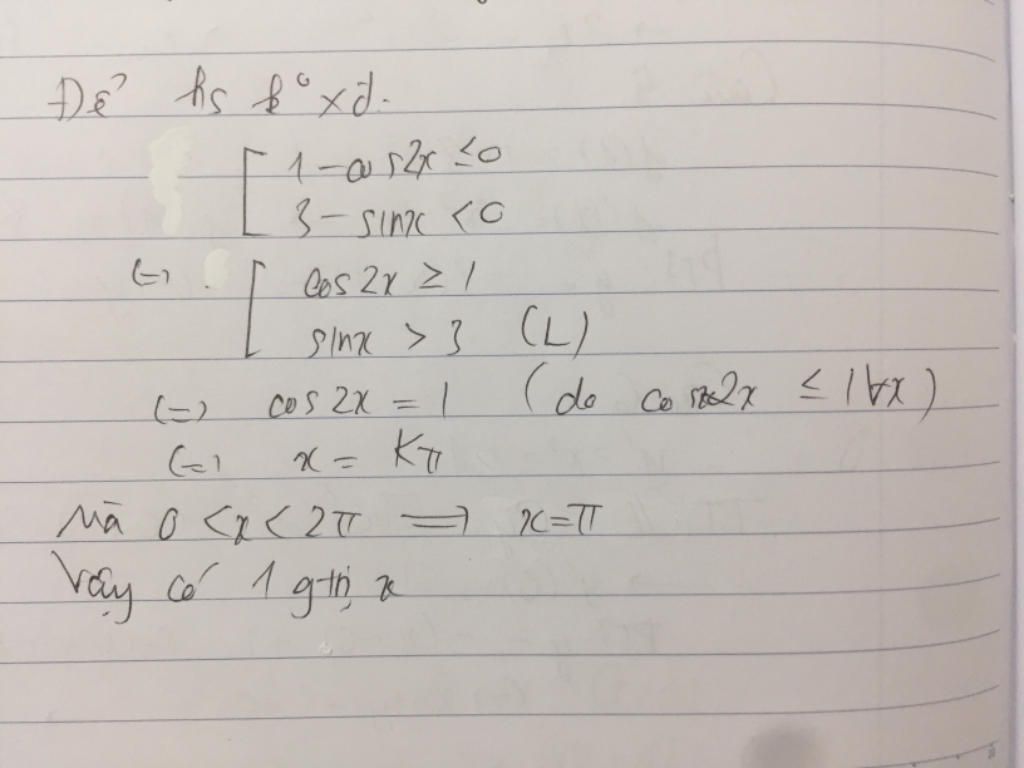 Để hs k° xđ.
1 - cos2x ≤ 0
3 - sinx < 0
(=) cos 2x ≥ 1
sinx > 3 (L)
(=) cos 2x = 1 (do cos2x ≤ 1 ∀x)
(=) x = Kπ
Mà 0 < x < 2π => x = π
Vậy có 1 g-trị x